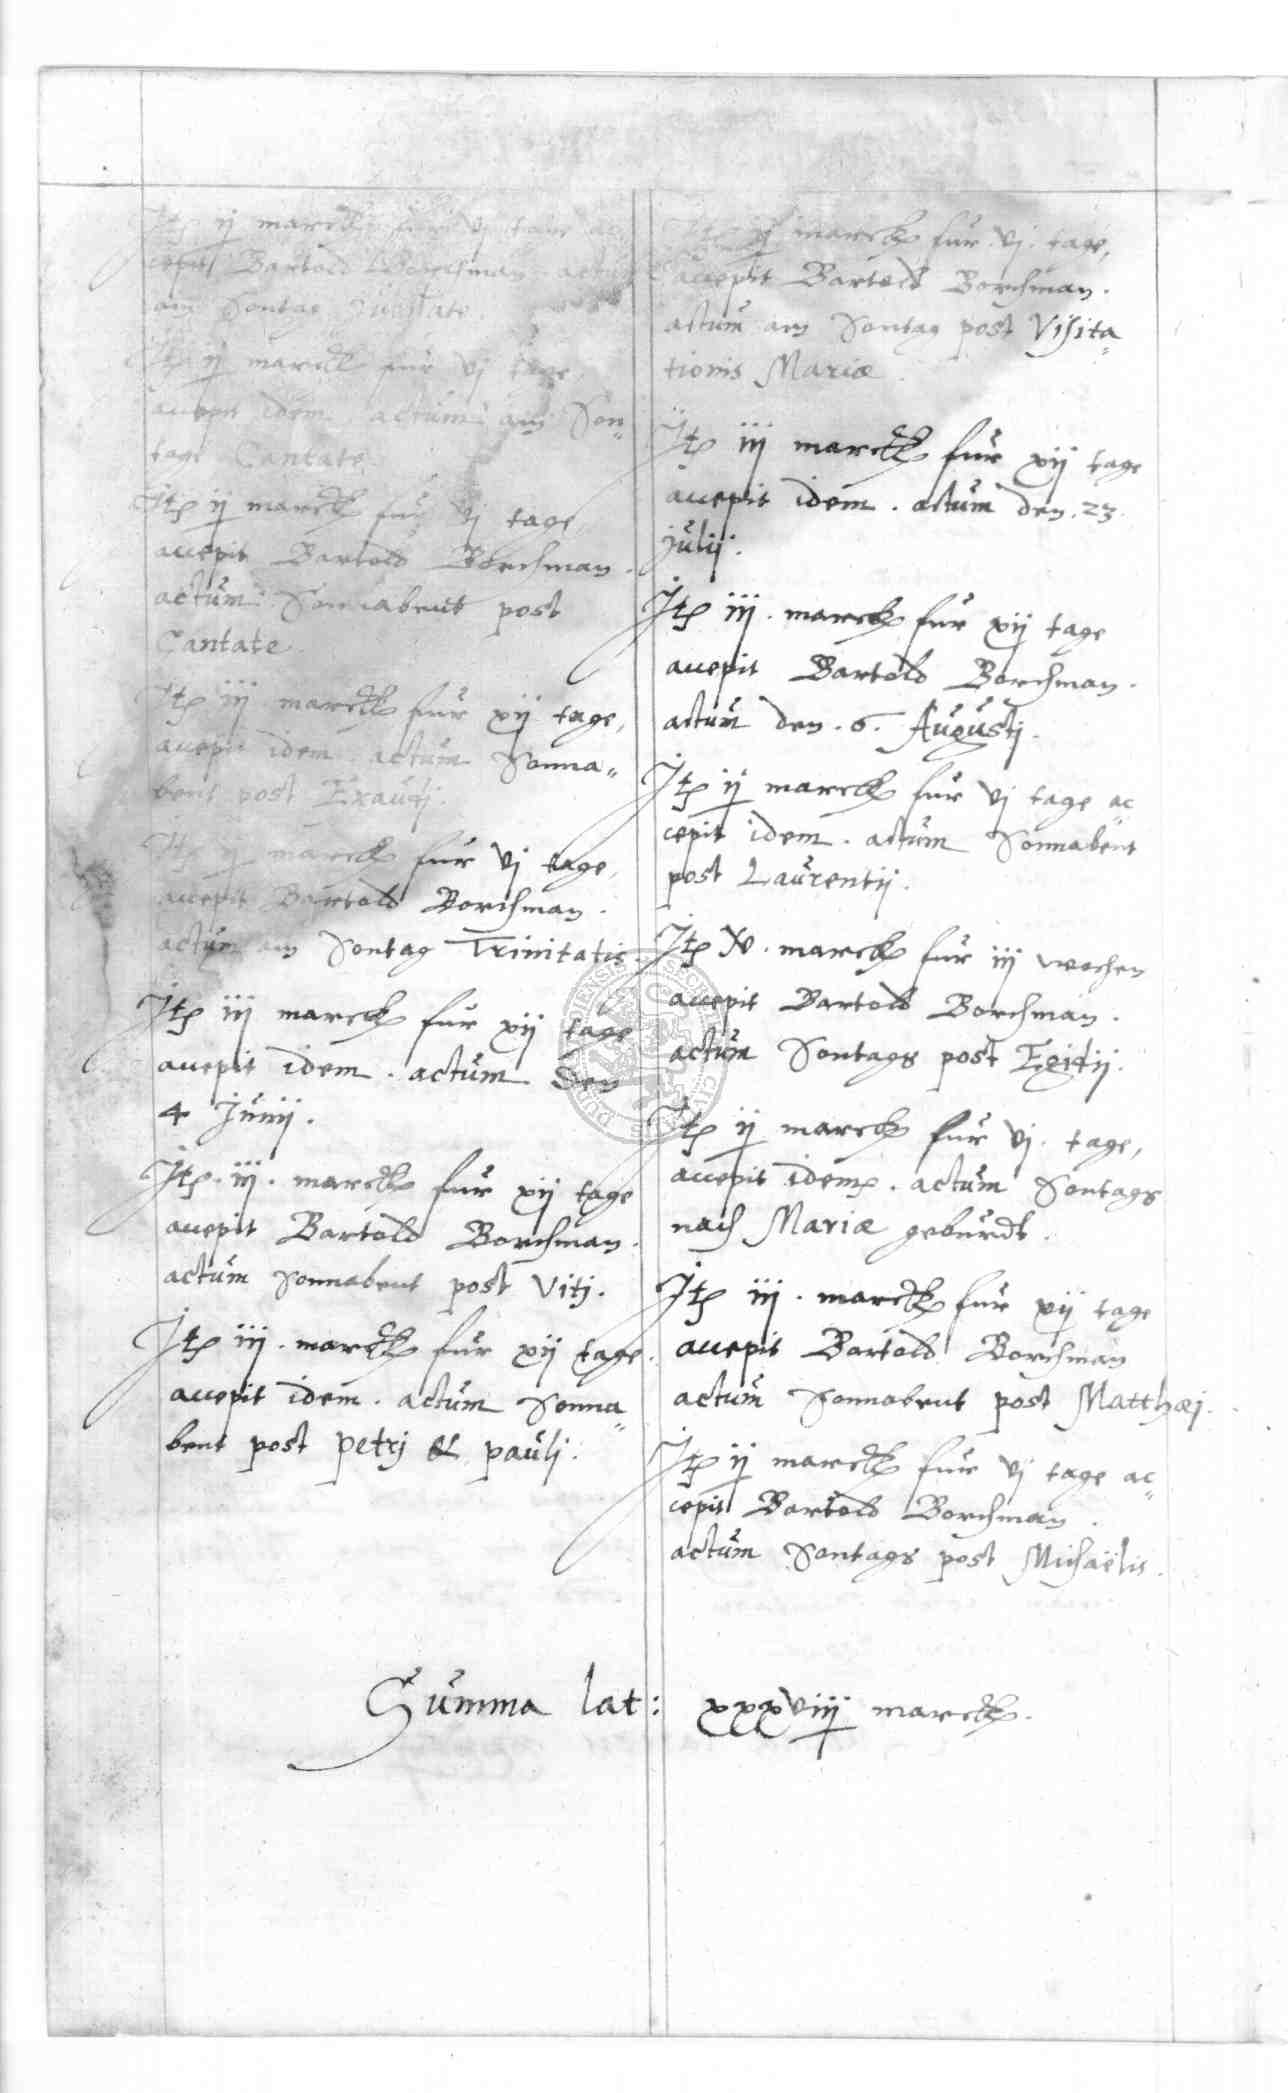 Itz ij marck für vj tage ac
cepit Bartold Borchman actum
am Sontag Jubilate.
Itz ij marck für vj tage,
accepit idem. actum am Son„
tage Cantate.
Itz ij marck für vj tage
accepit Bartold Borchman.
actum Sonnabent post
Cantate
Itz iij marck für xij tage,
accepit idem. actum Sonna„
bent post Exaudj.
Itz ij marck für vj tage,
accepit Bartold Borchman.
actum am Sontag Trinitatis.
Itz iij marck für xij tage
accepit idem. actum den
4 Junij.
Itz. iij. marck für xij tage
accepit Bartold Borchman.
actum Sonnabent post Vitj.
Itz iij. marck für xij tage.
accepit idem. actum Sonna„
bent post Petrj & Paulj.
Itz ij marck für vj. tage,
accepit Bartold Borchman.
actum am Sontag post Visita„
tionis Mariæ.
Itz iij marck für xij tage
accepit idem. actum den. 23.
Julij.
Itz iij. marck für xij tage
accepit Bartold Borchman.
actum den. 6. Augustj.
Itz ij marck für vj tage ac„
cepit idem. actum Sonnabent
post Laurentij.
Itz v. marck für iij wochen
accepit Bartold Borchman.
actum Sontags post Egidij.
Itz ij marck für vj. tage,
accepit idem. actum Sontags
nach Mariæ geburdt.
Itz iij. marck für xij tage
accepit Bartold Borchman
actum Sonnabent post Matthæj.
Itz ij marck für vj tage ac„
cepit Bartold Borchman.
actum Sontags post Michaëlis.
Summa lat: xxxviij marck.